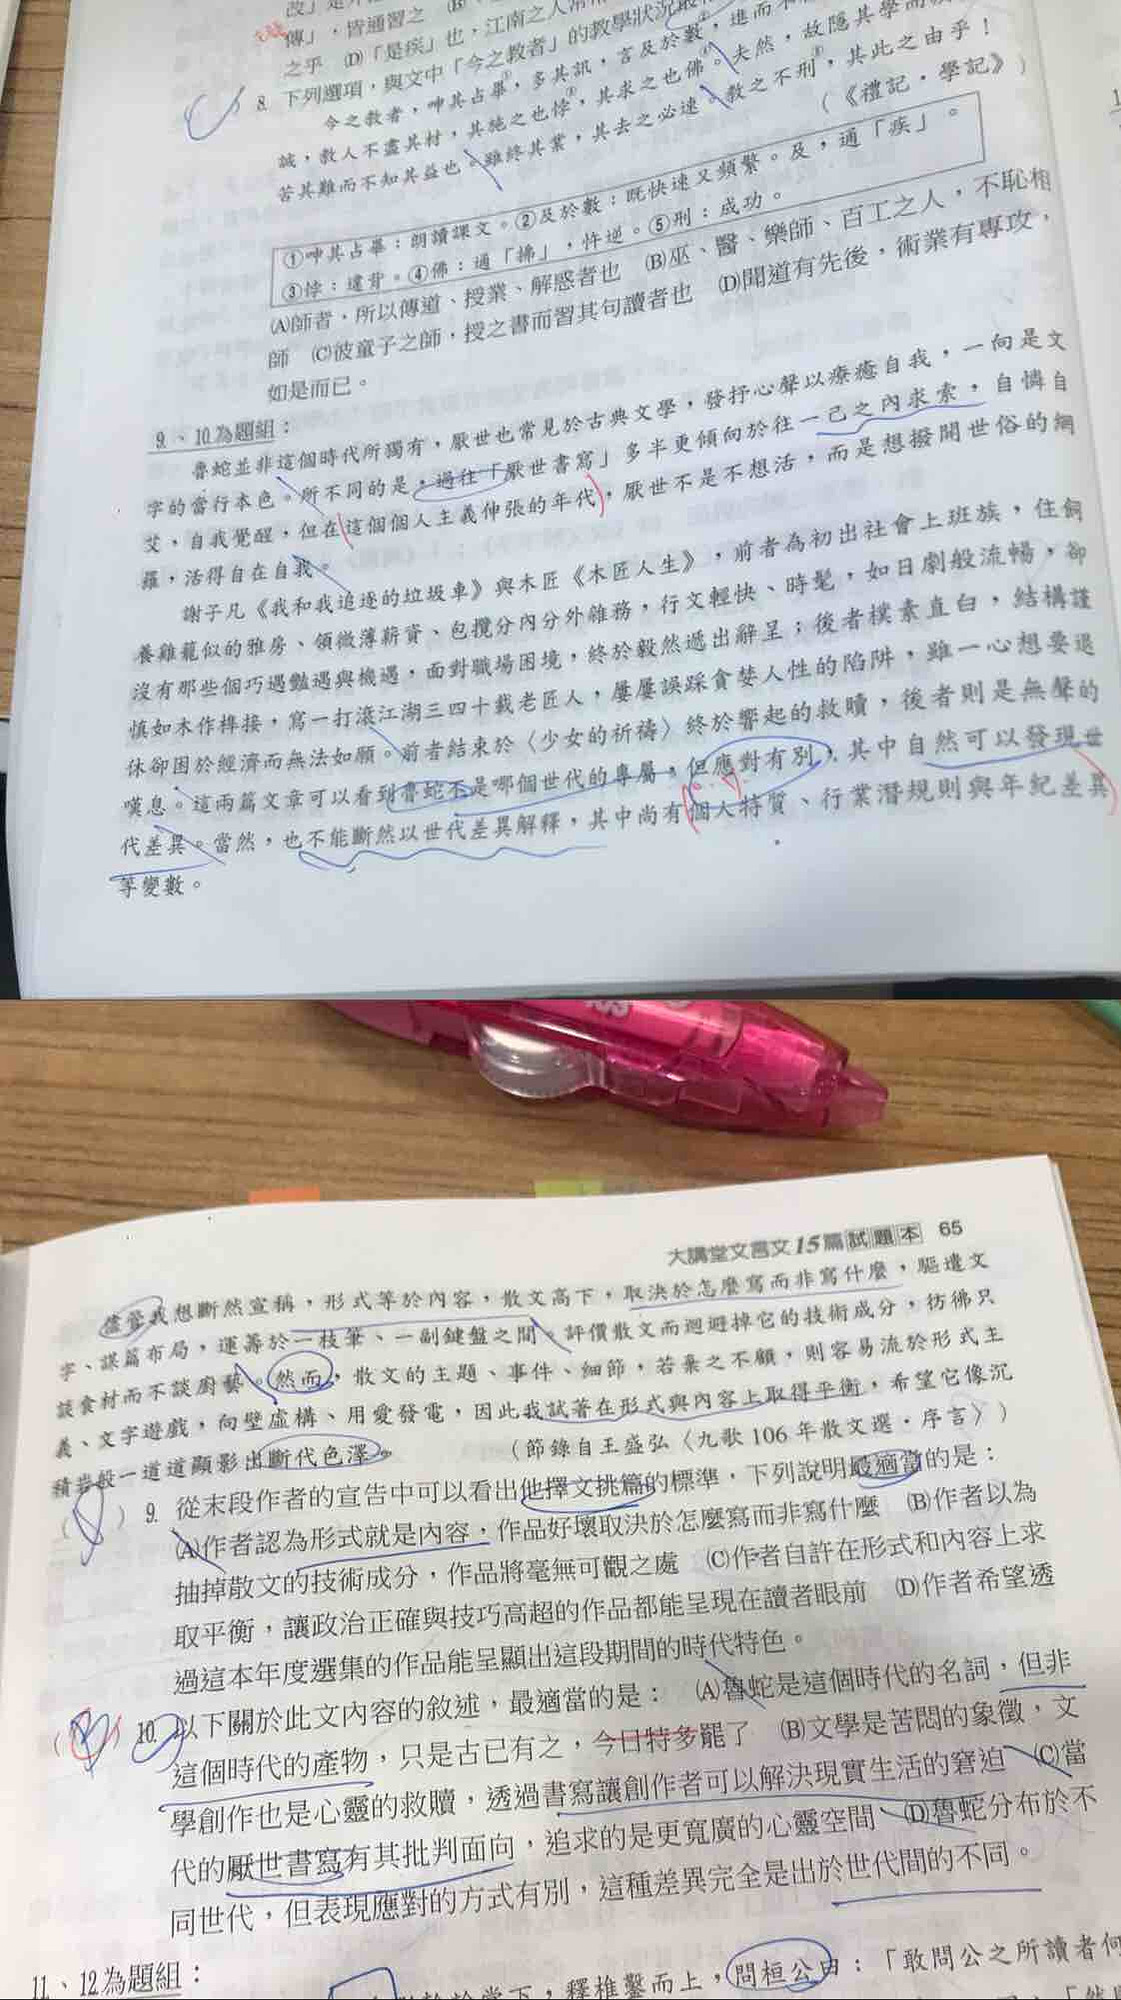 傳」，皆通習之
之乎　(D)「是疾」也，江南之人常
8. 下列選項，與文中「今之教者」的教學狀況最
今之教者，呻其占畢，多其訊，言及於數，進而不
誠，教人不盡其材，其施之也悖，其求之也佛。夫然，故隱其學而
苦其難而不知其益也。雖終其業，其去之必速。教之不刑，其此之由乎！
（《禮記．學記》）
①呻其占畢：朗讀課文。②及於數：既快速又頻繁。及，通「疾」。
③悖：違背。④佛：通「拂」，忤逆。⑤刑：成功。
(A)師者，所以傳道、授業、解惑者也　(B)巫、醫、樂師、百工之人，不恥相
師　(C)彼童子之師，授之書而習其句讀者也　(D)聞道有先後，術業有專攻，
如是而已。
9、10為題組：
魯蛇並非這個時代所獨有，厭世也常見於古典文學，發抒心聲以療癒自我，一向是文
字的當行本色。所不同的是，過往「厭世書寫」多半更傾向於往一己之內求索，自憐自
艾，自我覺醒，但在這個個人主義伸張的年代，厭世不是不想活，而是想撥開世俗的網
羅，活得自在自我。
謝子凡《我和我追逐的垃圾車》與木匠《木匠人生》，前者為初出社會上班族，住飼
養雞籠似的雅房、領微薄薪資、包攬分內分外雜務，行文輕快、時髦，如日劇般流暢，卻
沒有那些個巧遇豔遇與機遇，面對職場困境，終於毅然遞出辭呈；後者樸素直白，結構謹
慎如木作榫接，寫一打滾江湖三四十載老匠人，屢屢誤踩貪婪人性的陷阱，雖一心想要退
休卻困於經濟而無法如願。前者結束於〈少女的祈禱〉終於響起的救贖，後者則是無聲的
嘆息。這兩篇文章可以看到魯蛇不是哪個世代的專屬，但應對有別，其中自然可以發現世
代差異。當然，也不能斷然以世代差異解釋，其中尚有個人特質、行業潛規則與年紀差異
等變數。
大講堂文言文15篇試題本　65
儘管我想斷然宣稱，形式等於內容，散文高下，取決於怎麼寫而非寫什麼，驅遣文
字、謀篇布局，運籌於一枝筆、一副鍵盤之間。評價散文而迴避掉它的技術成分，彷彿只
談食材而不談廚藝。然而，散文的主題、事件、細節，若棄之不顧，則容易流於形式主
義、文字遊戲，向壁虛構、用愛發電，因此我試著在形式與內容上取得平衡，希望它像沉
積岩般一道道顯影出斷代色澤。　（節錄自王盛弘〈九歌106年散文選．序言〉）
（　）9. 從末段作者的宣告中可以看出他擇文挑篇的標準，下列說明最適當的是：
(A)作者認為形式就是內容，作品好壞取決於怎麼寫而非寫什麼　(B)作者以為
抽掉散文的技術成分，作品將毫無可觀之處　(C)作者自許在形式和內容上求
取平衡，讓政治正確與技巧高超的作品都能呈現在讀者眼前　(D)作者希望透
過這本年度選集的作品能呈顯出這段期間的時代特色。
（　）10. 以下關於此文內容的敘述，最適當的是：　(A)魯蛇是這個時代的名詞，但非
這個時代的產物，只是古已有之，今日特多罷了　(B)文學是苦悶的象徵，文
學創作也是心靈的救贖，透過書寫讓創作者可以解決現實生活的窘迫　(C)當
代的厭世書寫有其批判面向，追求的是更寬廣的心靈空間　(D)魯蛇分布於不
同世代，但表現應對的方式有別，這種差異完全是出於世代間的不同。
11、12為題組：
堂下，釋椎鑿而上，問桓公曰：「敢問公之所讀者何